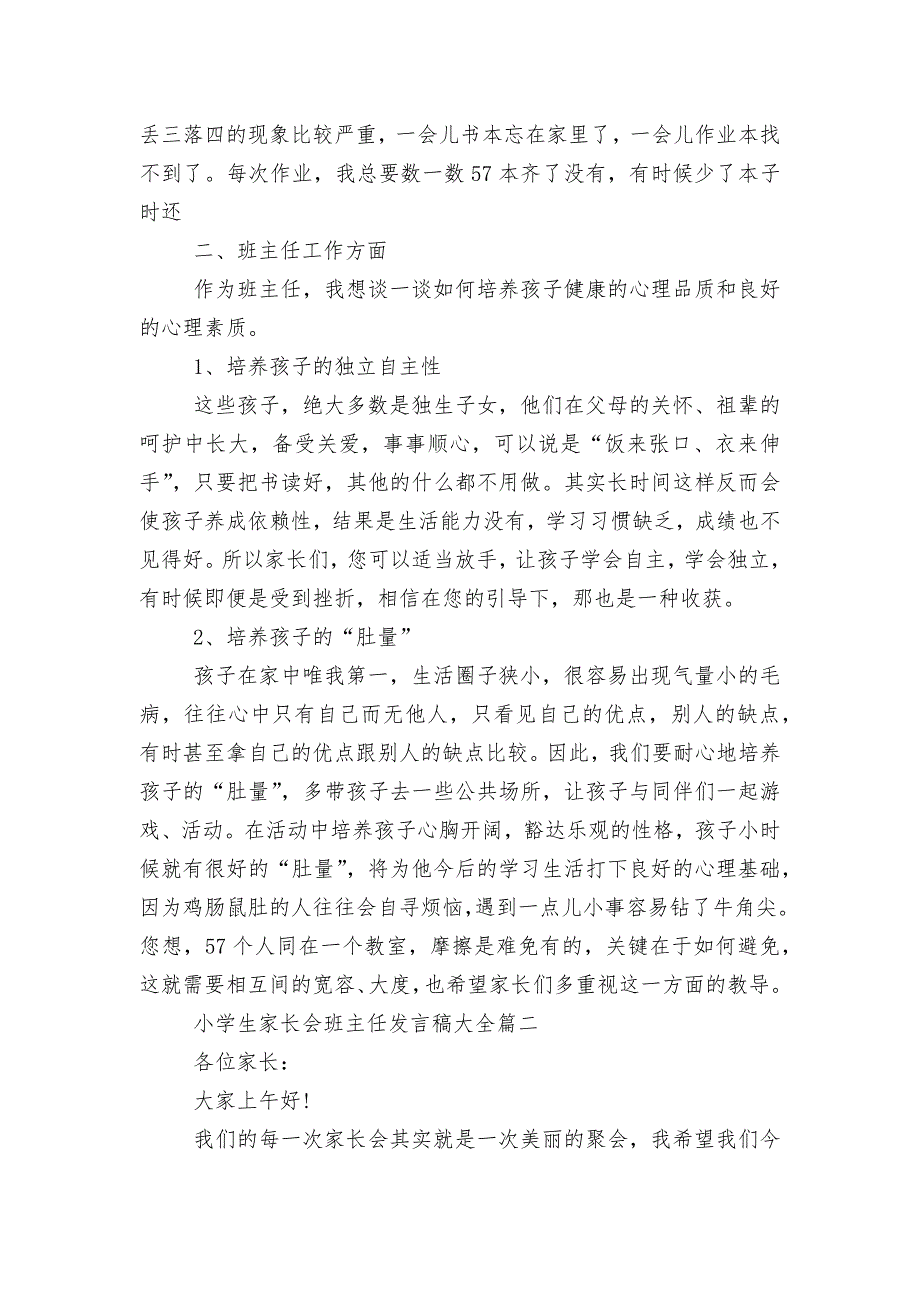 丢三落四的现象比较严重，一会儿书本忘在家里了，一会儿作业本找
不到了。每次作业，我总要数一数 57 本齐了没有，有时候少了本子
时还
二、班主任工作方面
作为班主任，我想谈一谈如何培养孩子健康的心理品质和良好
的心理素质。
1、培养孩子的独立自主性
这些孩子，绝大多数是独生子女，他们在父母的关怀、祖辈的
呵护中长大，备受关爱，事事顺心，可以说是“饭来张口、衣来伸
手”，只要把书读好，其他的什么都不用做。其实长时间这样反而会
使孩子养成依赖性，结果是生活能力没有，学习习惯缺乏，成绩也不
见得好。所以家长们，您可以适当放手，让孩子学会自主，学会独立，
有时候即便是受到挫折，相信在您的引导下，那也是一种收获。
2、培养孩子的“肚量”
孩子在家中唯我第一，生活圈子狭小，很容易出现气量小的毛
病，往往心中只有自己而无他人，只看见自己的优点，别人的缺点，
有时甚至拿自己的优点跟别人的缺点比较。因此，我们要耐心地培养
孩子的“肚量”，多带孩子去一些公共场所，让孩子与同伴们一起游
戏、活动。在活动中培养孩子心胸开阔，豁达乐观的性格，孩子小时
候就有很好的“肚量”，将为他今后的学习生活打下良好的心理基础，
因为鸡肠鼠肚的人往往会自寻烦恼，遇到一点儿小事容易钻了牛角尖。
您想，57 个人同在一个教室，摩擦是难免有的，关键在于如何避免，
这就需要相互间的宽容、大度，也希望家长们多重视这一方面的教导。
小学生家长会班主任发言稿大全篇二
各位家长：
大家上午好!
我们的每一次家长会其实就是一次美丽的聚会，我希望我们今